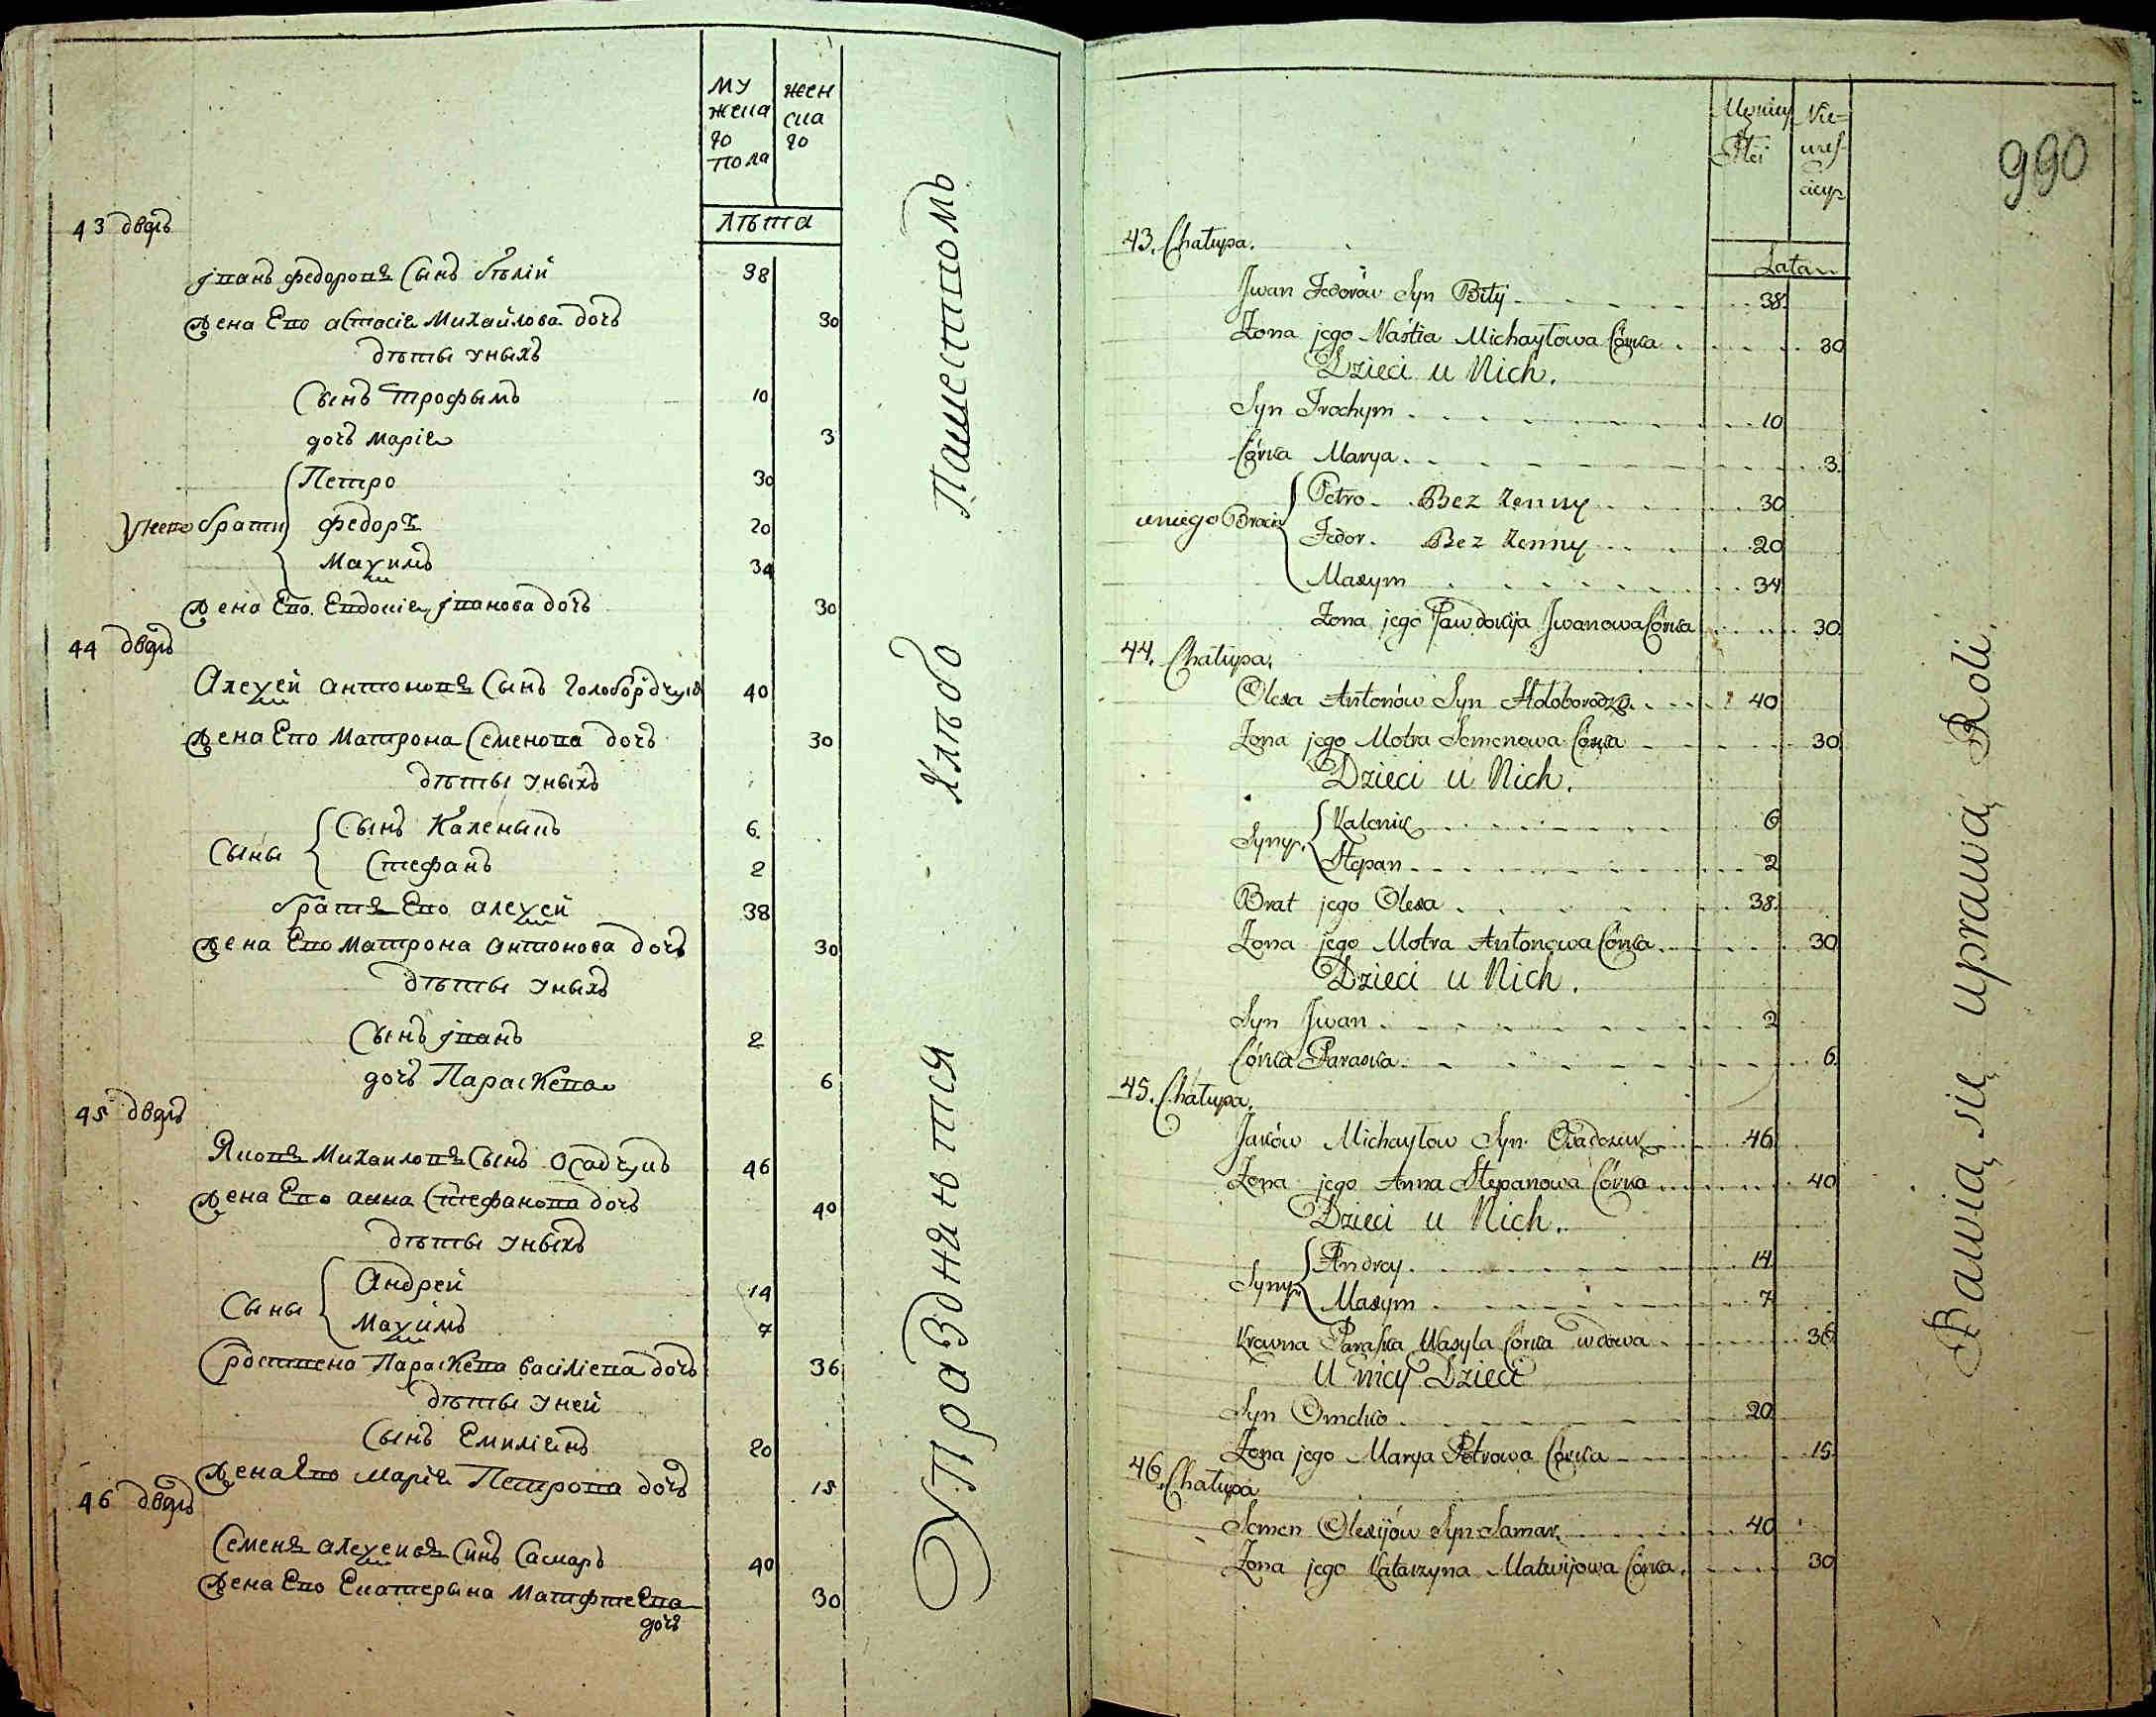 му
жеска
го
пола
жен
ска
го
лѣта
43 дворъ
Іванъ федоровъ Сынъ бѣлій 38
жена Его астасія Михайлова дочь 30
дѣты уныхъ
Сынъ трофымъ 10
дочь марія 3
унего браты
Петро 30
федоръ 20
Маѯимъ 34
жена Его Евдокія Іванова дочь 30
44 дворъ
Алеѯей антоновъ Сынъ голобородчукъ 40
жена Его Матрона Семенова дочь 30
дѣты уныхъ
Сыны
Сынъ Каленыкъ 6
Стефанъ 2
братъ Его алеѯей 38
жена Его Матрона антонова дочь 30
дѣты уныхъ
Сынъ Іванъ 2
дочь Параскева 6
45 дворъ
Яковъ Михаиловъ Сынъ Осадчукъ 46
жена Его анна Стефанова дочь 40
дѣты уныхъ
Сыны
Андрей 14
Маѯимъ 7
Параскева василіева дочь 36
дѣты уней
Сынъ Емиліянъ 20
жена Его марія Петрова дочь 15
46 дворъ
Семенъ алеѯеивъ Синъ Самаръ 40
жена Его Екатерына Матфіева 30
дочь
Упражняются хлѣбо пашествомъ
990
Męnizy
Płci
Nie=
wes=
ciey
Lata
43. Chałupa.
Jwan Fedorów Syn Biłij 38.
Zona jego Nastia Michayłowa Córka 30
Dzieci u Nich.
Syn Trochym 10
Córka Marya 3.
uniego Bracia
Petro Bez Zenny 30
Fedor. Bez Zenny 20
Maxym 34
Zona jego Jawdokija Jwanowa Córka 30.
44. Chałupa.
Olexa Antonów Syn Hołoborodko 40
Zona jego Motra Semenowa Córka 30
Dzieci u Nich.
Syny.
Kalenik 6
Stepan 2
Brat jego Olexa 38.
Zona jego Motra Antonowa Córka 30
Dzieci u Nich.
Syn Jwan 2
Córka Paraska 6.
45. Chałupa.
Jaków Michayłow Syn 46
Zona jego Anna Stepanowa Córka 40
Dzieci u Nich.
Syny
Andrey 14
Maxym 7
Krewna Paraska Wasyla Córka wdowa 36
U niey Dzieci
Syn Omelko 20
Zona jego Marya Petrowa Córka 15.
46. Chałupa
Semen Olexijów Syn Samar 40
Zona jego Katarzyna Matwijowa Córka. 30
Bawią się uprawą Roli.